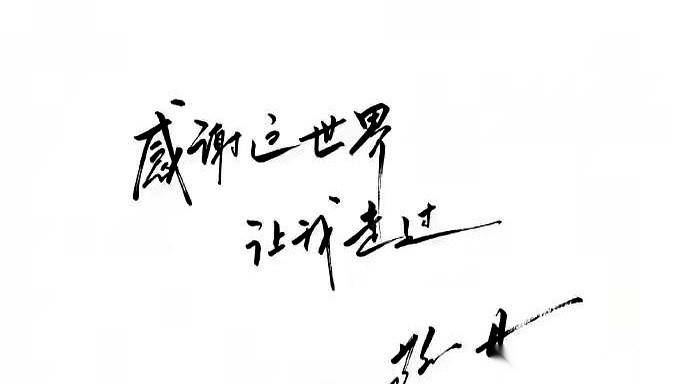 感谢这世界
让我走过